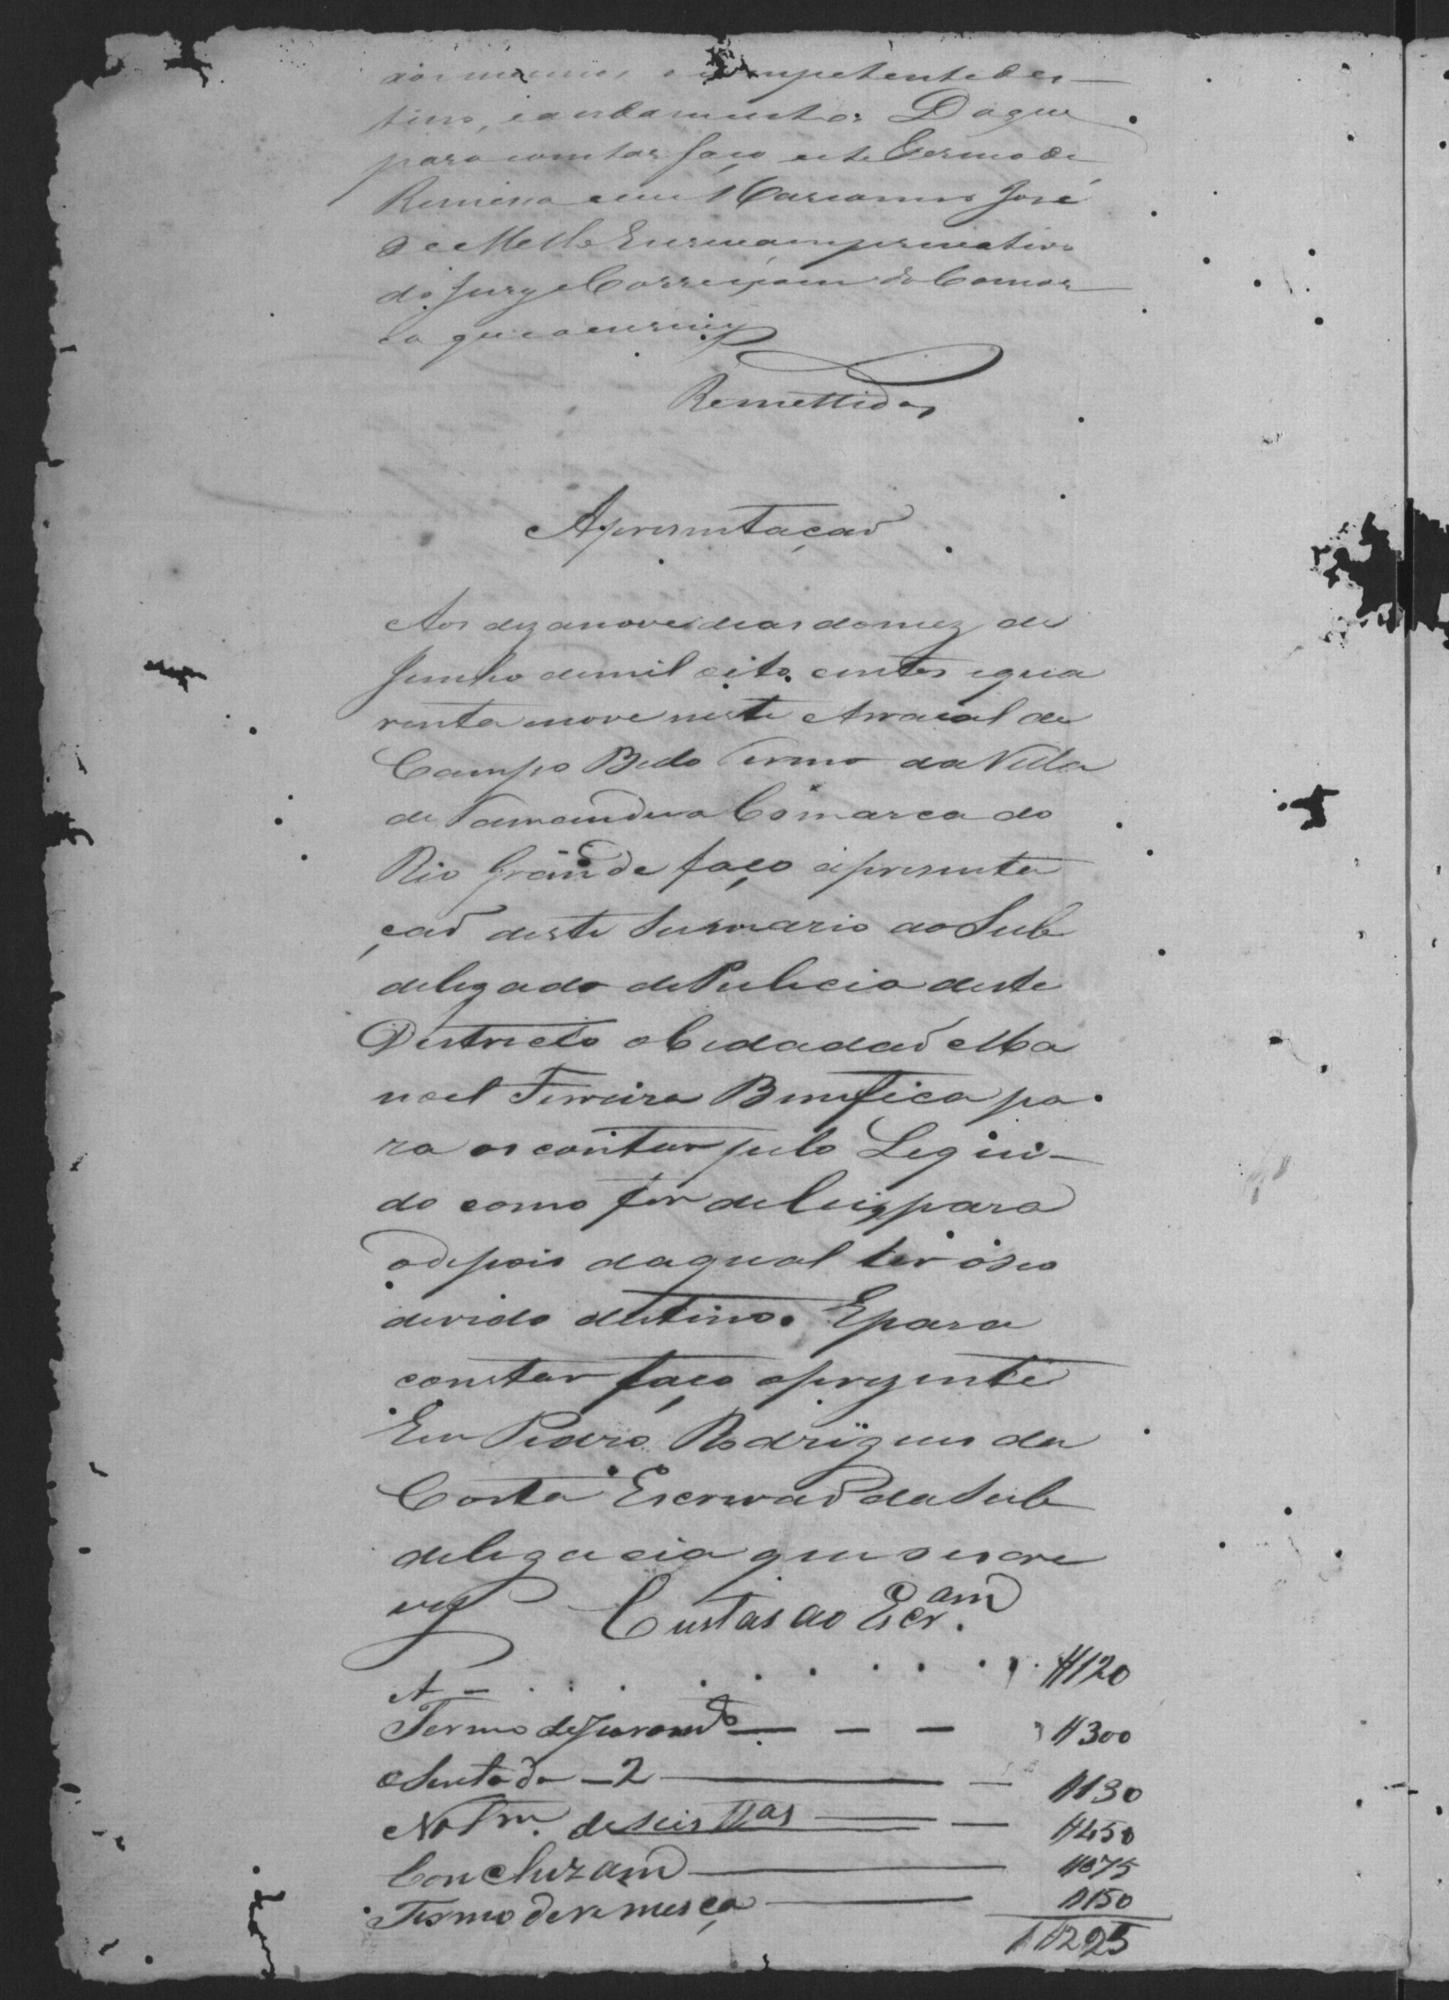 aos mesmos o competente des-
tino, e andamento: Do que
para constar faço este Termo de
Remeça eu Marianno José
de Mello Escrivam privativo
do Jury e Correiçam da Comar-
ca que o escrevy
Remettidos
Apresentaçaõ
Aos dezanove dias do mez de
Junho de mil oito centos e qua
renta e nove neste Arraial de
Campo Bello Termo da Villa
de Tamandua Comarca do
Rio Grande faço apresenta
çaõ deste Sumario ao Sub
delegado de Pulicia deste
Destricto o Cidadaõ Ma
noel Ferreira Benefica pa
ra os contar pelo Legui-
do como for de Lei, para
o depois da qual ter o seo
devido destino. E para
constar faço o prezente
Eu Pedro Rodrigues da
Costa Escrivaõ da Sub
delegacia que o escre
vy Custas ao Escr.am
A - . . . . . . . . #120
Termo de Juram.to — — — #300
Asentada - 2 — #130
Not.m de seis ttas — #450
Concluzam — #075
Termo de remesça — #150
1#225